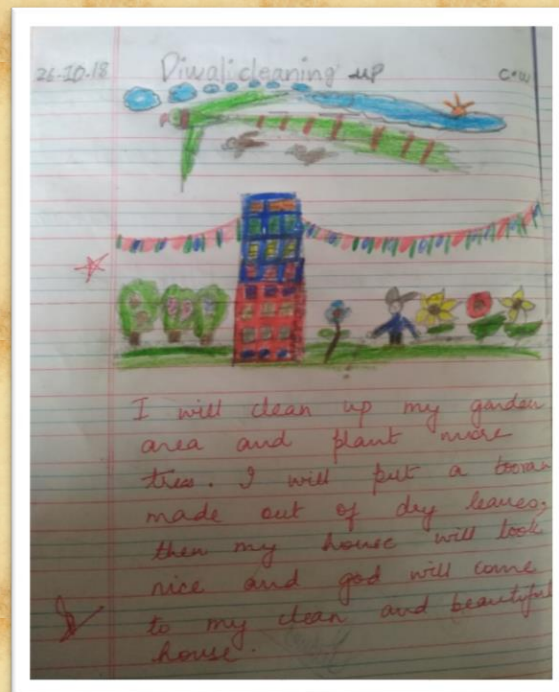 26-10-18 Diwali cleaning up C.W
I will clean up my garden
area and plant more
trees. I will put a toran
made out of dry leaves.
then my house will look
nice and god will come
to my clean and beautiful
house.